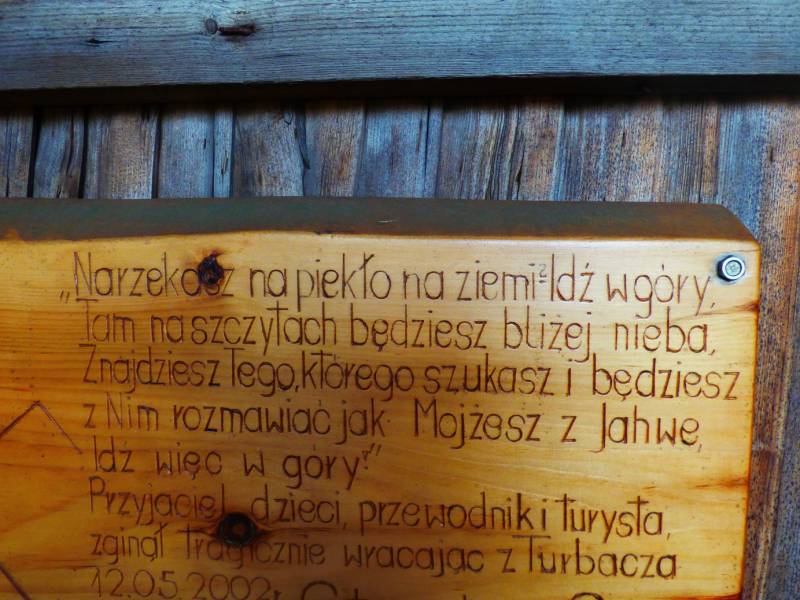 „Narzekasz na piekło na ziemi? Idź w góry,
Tam na szczytach będziesz bliżej nieba,
Znajdziesz Tego, którego szukasz i będziesz
z Nim rozmawiać jak Mojżesz z Jahwe,
Idź więc w góry!"
Przyjaciel dzieci, przewodnik i turysta,
zginął tragicznie wracając z Turbacza
12.05.2002r.